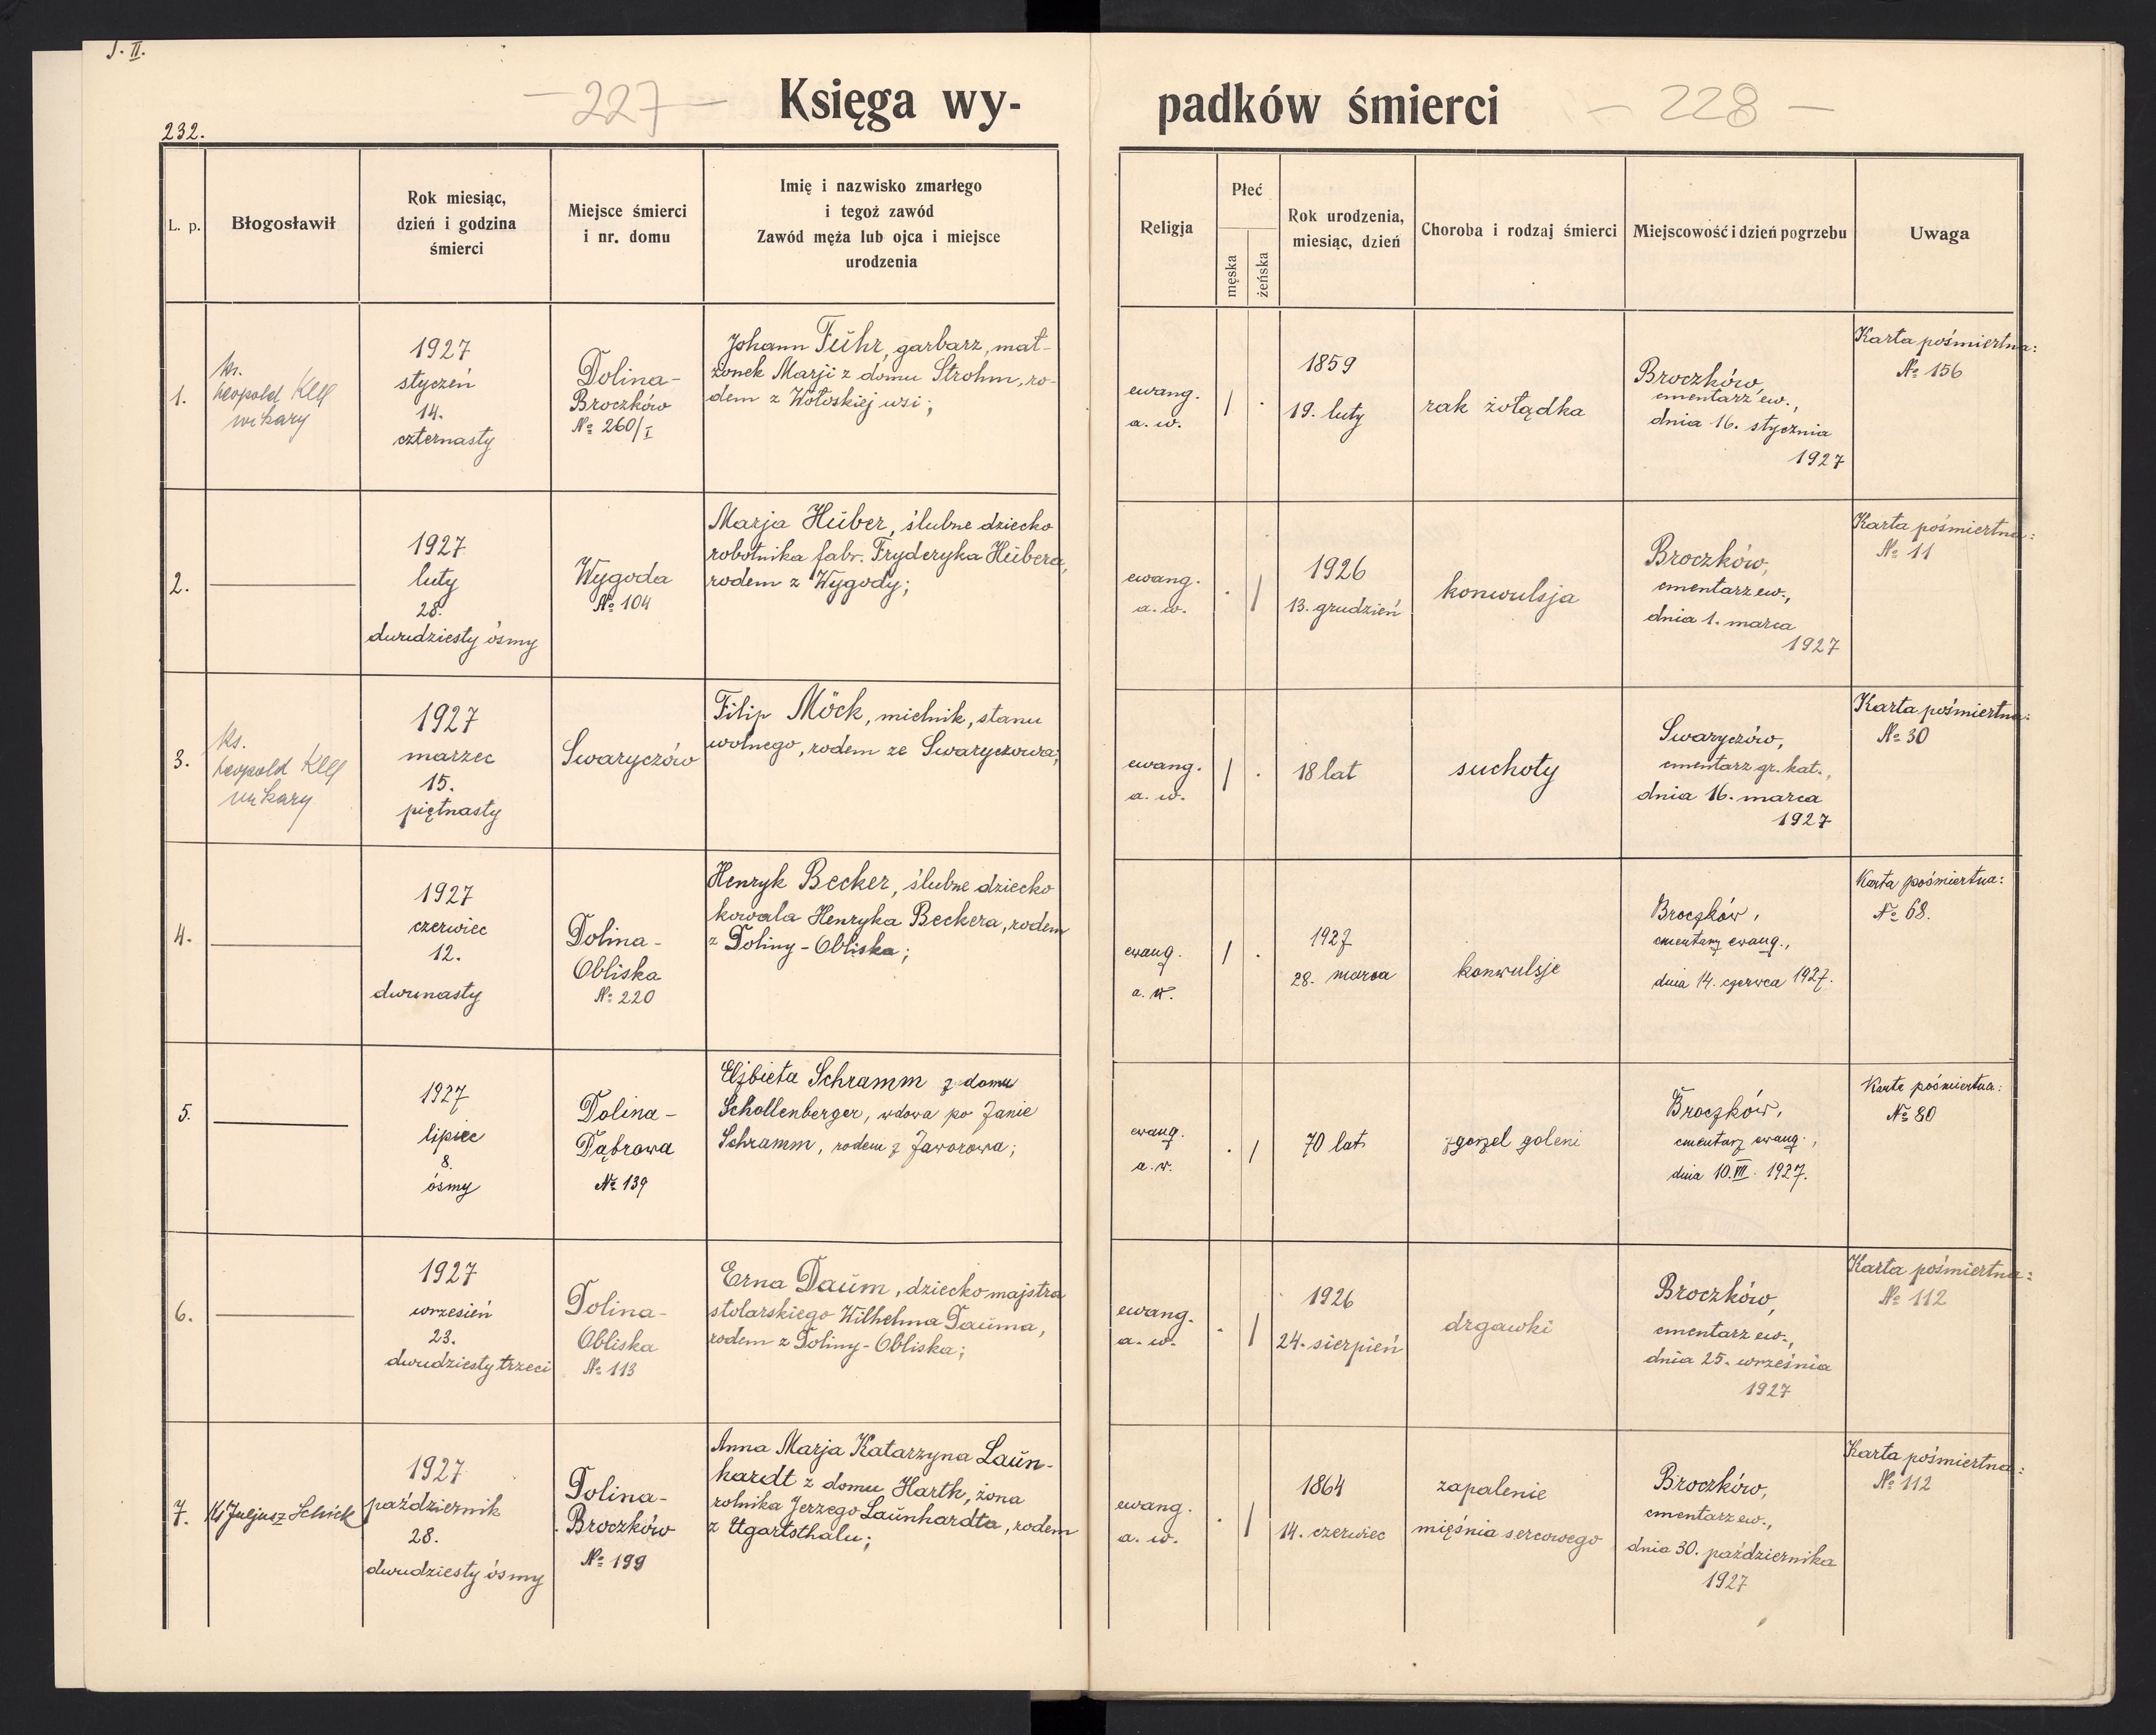 J. II.
— 227 —
Księga wy-
232.
L. p.
Błogosławił
Rok miesiąc,
dzień i godzina
śmierci
Miejsce śmierci
i nr. domu
Imię i nazwisko zmarłego
i tegoż zawód
Zawód męża lub ojca i miejsce
urodzenia
1.
ks.
Leopold
wikary
1927
styczeń
14.
czternasty
Dolina-
Broczków
№ 260/I
Johann Führ, garbarz, mał-
żonek Marji z domu Strohm, ro-
dem z Wołoskiej wsi;
2.
1927
luty
28.
dwudziesty ósmy
Wygoda
№ 104
Marja Hüber, ślubne dziecko
robotnika fabr. Fryderyka Hübera,
rodem z Wygody;
3.
ks.
Leopold
wikary
1927
marzec
15.
piętnasty
Swaryczów
Filip Möck, mielnik, stanu
wolnego, rodem ze Swaryczowa;
4.
1927
czerwiec
12.
dwunasty
Dolina-
Obliska
№ 220
Henryk Becker, ślubne dziecko
kowala Henryka Beckera, rodem
z Doliny-Obliska;
5.
1927
lipiec
8.
ósmy
Dolina-
Dąbrowa
№ 139
Elżbieta Schramm z domu
Schollenberger, wdowa po Janie
Schramm, rodem z Jaworowa;
6.
1927
wrzesień
23.
dwudziesty trzeci
Dolina-
Obliska
№ 113
Erna Daŭm, dziecko majstra
stolarskiego Wilhelma Daŭma,
rodem z Doliny-Obliska;
7.
Ks Juljusz Schick
1927
październik
28.
dwudziesty ósmy
Dolina-
Broczków
№ 199
Anna Marja Katarzyna Laŭn-
hardt z domu Harth, żona
rolnika Jerzego Laŭnhardta, rodem
z Ugartsthalu;
padków śmierci
— 228 —
Religja
Płeć
męska
żeńska
Rok urodzenia,
miesiąc, dzień
Choroba i rodzaj śmierci
Miejscowość i dzień pogrzebu
Uwaga
ewang.
a. w.
1859
19. luty
rak żołądka
Broczków,
cmentarz ew.,
dnia 16. stycznia
1927
Karta pośmiertna:
№ 156
ewang.
a. w.
1926
13. grudzień
konwulsja
Broczków,
cmentarz ew.,
dnia 1. marca
1927
Karta pośmiertna:
№ 11
ewang.
a. w.
18 lat
suchoty
Swaryczów,
cmentarz gr. kat.,
dnia 16. marca
1927
Karta pośmiertna:
№ 30
ewang.
a. w.
1927
28. marca
konwulsje
Broczków,
cmentarz ewang.,
dnia 14. czerwca 1927.
Karta pośmiertna:
№ 68.
ewang.
a. w.
70 lat
zgorzel goleni
Broczków,
cmentarz ewang.,
dnia 10. VII. 1927.
Karta pośmiertna:
№ 80
ewang.
a. w.
1926
24. sierpień
drgawki
Broczków,
cmentarz ew.,
dnia 25. września
1927
Karta pośmiertna:
№ 112
ewang.
a. w.
1864
14. czerwiec
zapalenie
mięśnia sercowego
Broczków,
cmentarz ew.,
dnia 30. października
1927
Karta pośmiertna:
№ 112